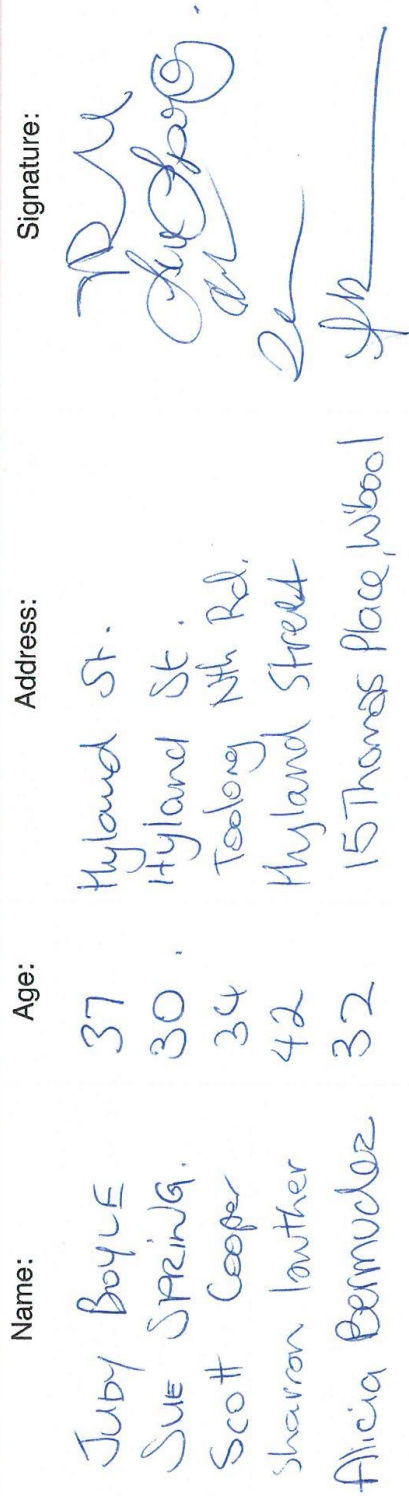 Name: Age: Address: Signature:
Judy BOYLE 37 Hyland St.
SUE SPRING. 30. Hyland St.
Scott Cooper 34 Toolong Nth Rd.
Sharron Lowther 42 Hyland Street
Alicia Bermudez 32 15 Thomas Place, W'bool